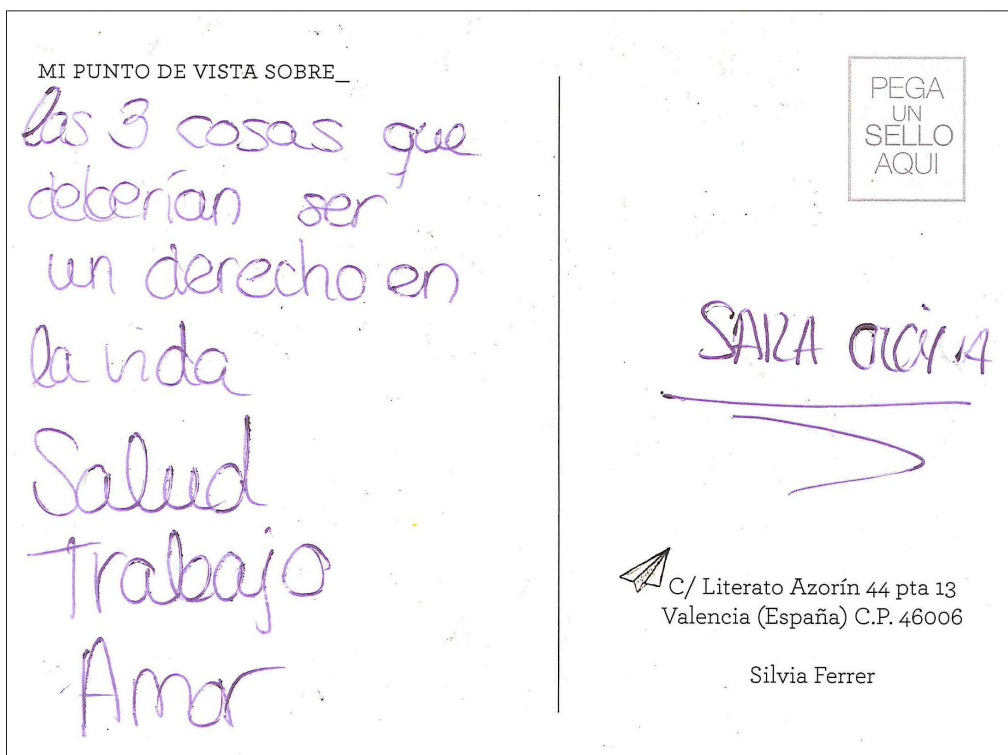 MI PUNTO DE VISTA SOBRE_
las 3 cosas que
deberían ser
un derecho en
la vida
Salud
Trabajo
Amor
PEGA
UN
SELLO
AQUI
SARA
C/ Literato Azorín 44 pta 13
Valencia (España) C.P. 46006
Silvia Ferrer